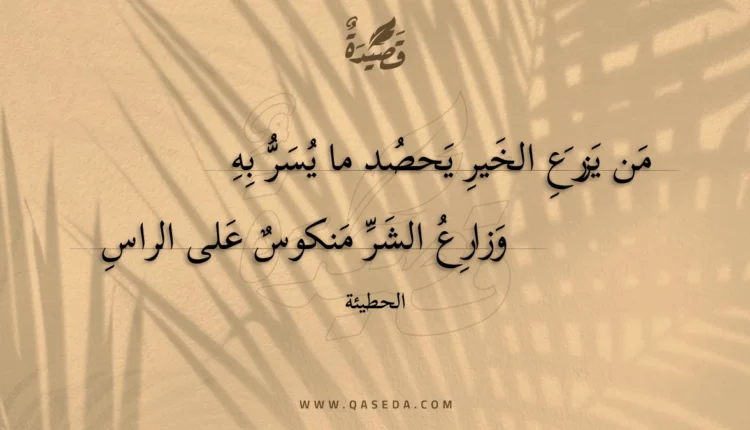 قَصِيْدَةٌ
مَن يَزرَعِ الخَيرِ يَحصُد ما يُسَرُّ بِهِ
وَزارِعُ الشَرِّ مَنكوسٌ عَلى الراسِ
الحطيئة
WWW.QASEDA.COM